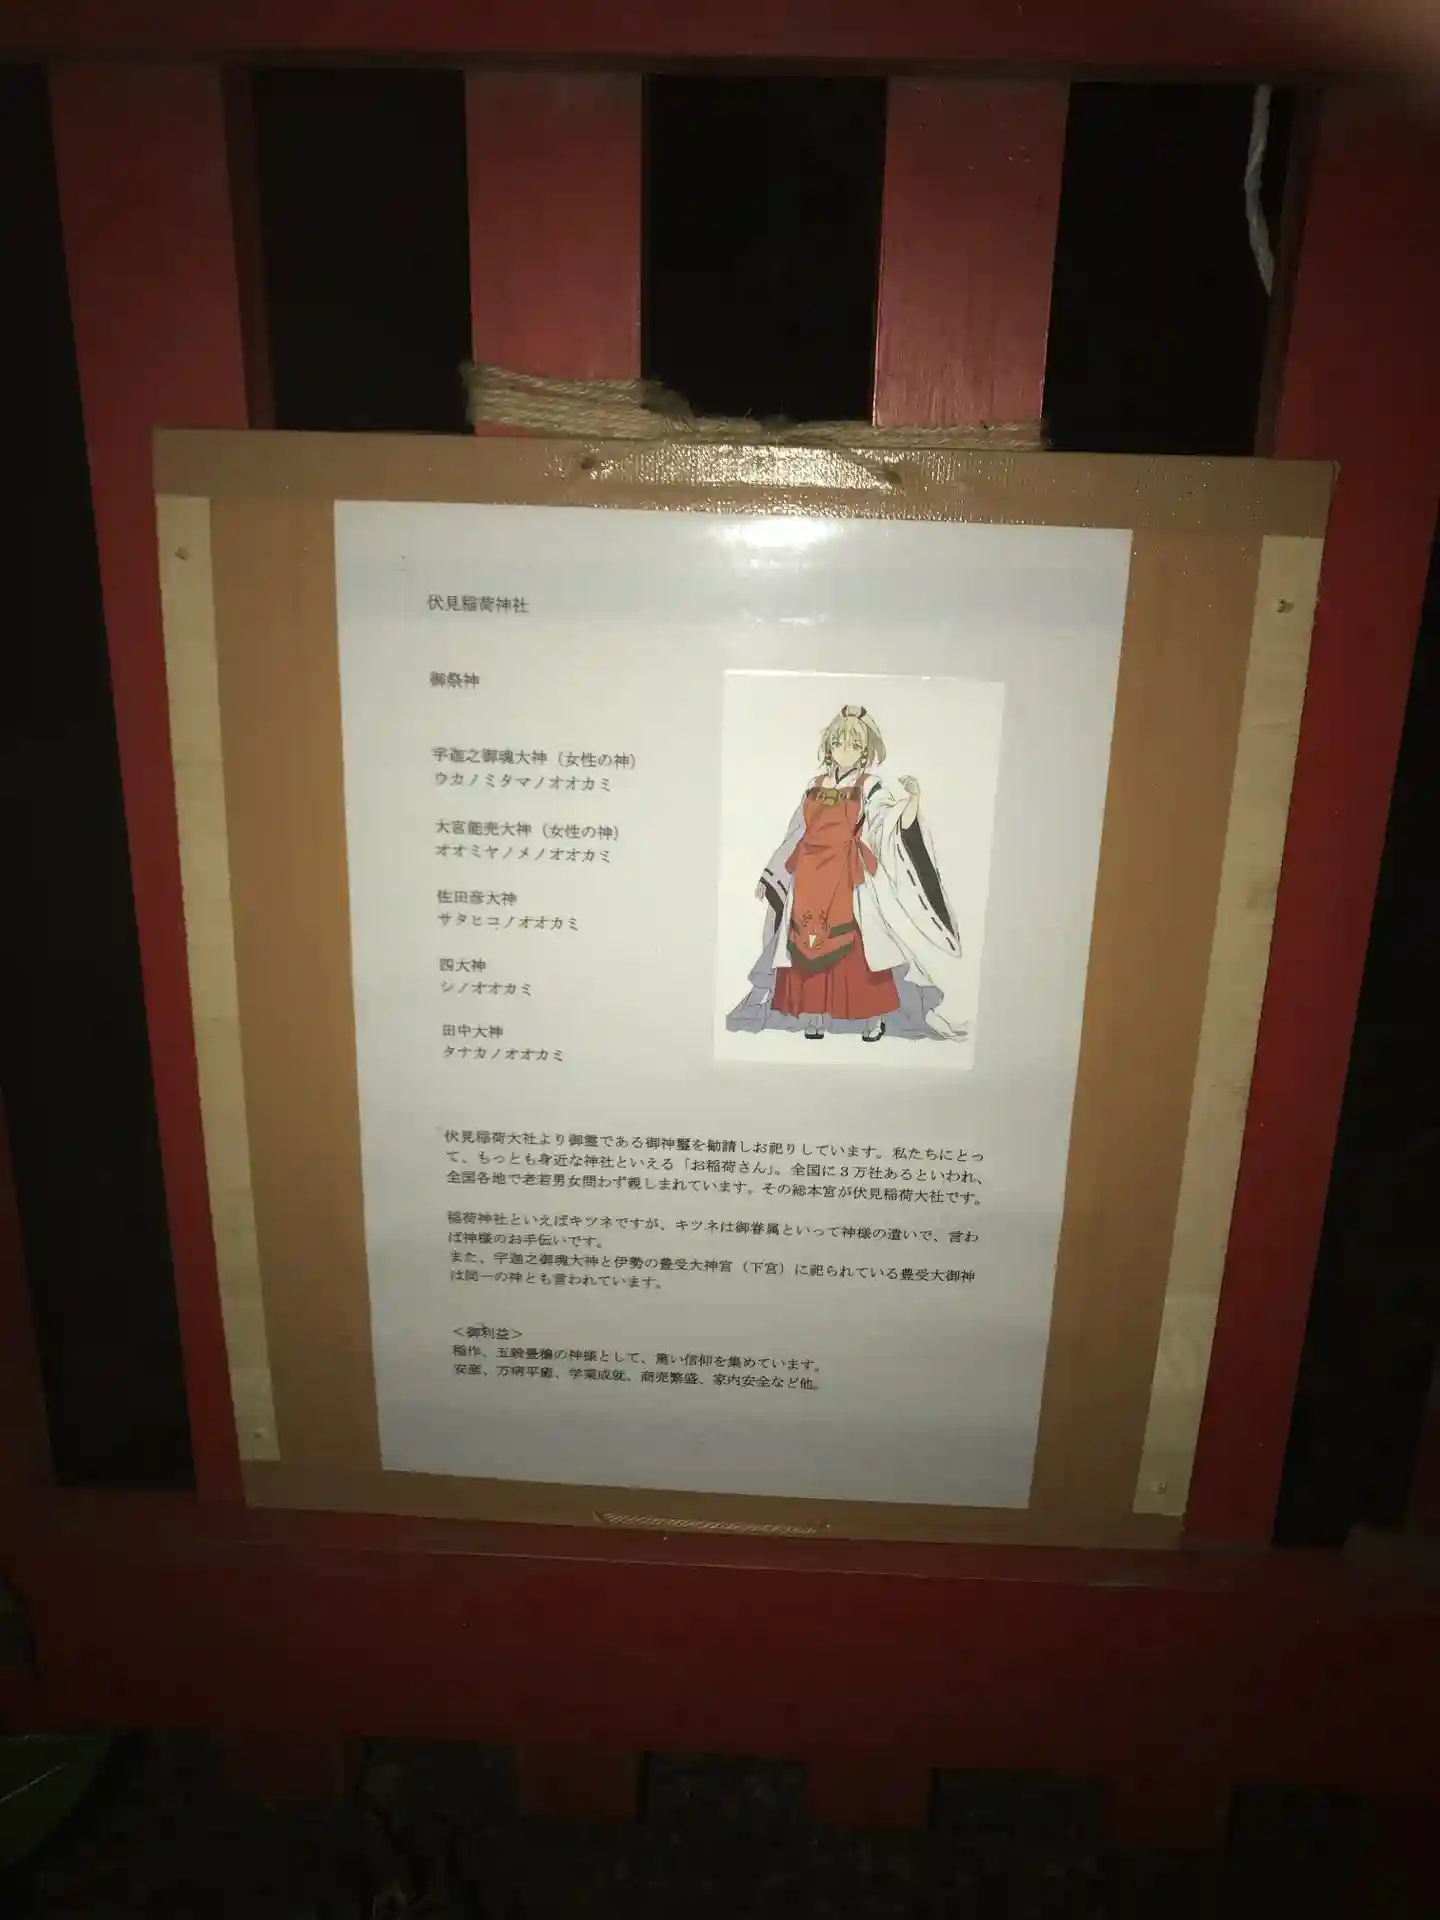 伏見稲荷神社
御祭神
宇迦之御魂大神（女性の神）
ウカノミタマノオオカミ
大宮能売大神（女性の神）
オオミヤノメノオオカミ
佐田彦大神
サタヒコノオオカミ
四大神
シノオオカミ
田中大神
タナカノオオカミ
伏見稲荷大社より御霊である御神璽を勧請しお祀りしています。私たちにとっ
て、もっとも身近な神社といえる「お稲荷さん」。全国に３万社あるといわれ、
全国各地で老若男女問わず親しまれています。その総本宮が伏見稲荷大社です。
稲荷神社といえばキツネですが、キツネは御眷属といって神様の遣いで、言わ
ば神様のお手伝いです。
また、宇迦之御魂大神と伊勢の豊受大神宮（下宮）に祀られている豊受大御神
は同一の神とも言われています。
＜御利益＞
稲作、五穀豊穣の神様として、篤い信仰を集めています。
安産、万病平癒、学業成就、商売繁盛、家内安全など他。